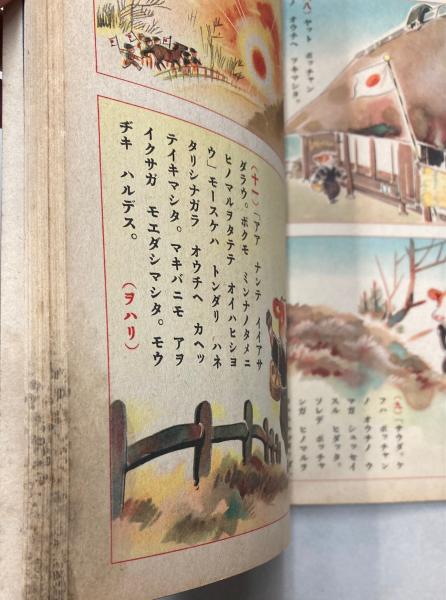 (八) ヤット ボッチャン
ノ オウチヘ ツキマシタ。
(九)「サウダ、ケ
フハ ボッチャン
ノ オウチノ ウ
マガ シュッセイ
スル ヒダッタ。
ソレデ ボッチャ
ンガ ヒノマルヲ
(十一)「アア ナンテ イイアサ
ダラウ。ボクモ ミンナノタメニ
ヒノマルヲタテテ オイハヒショ
ウ」モースケハ トンダリ ハネ
タリシナガラ オウチヘ カヘッ
テイキマシタ。マキバニモ アヲ
イクサガ モエダシマシタ。モウ
ヂキ ハルデス。
(ヲハリ)